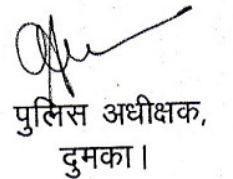 पुलिस अधीक्षक,
दुमका।